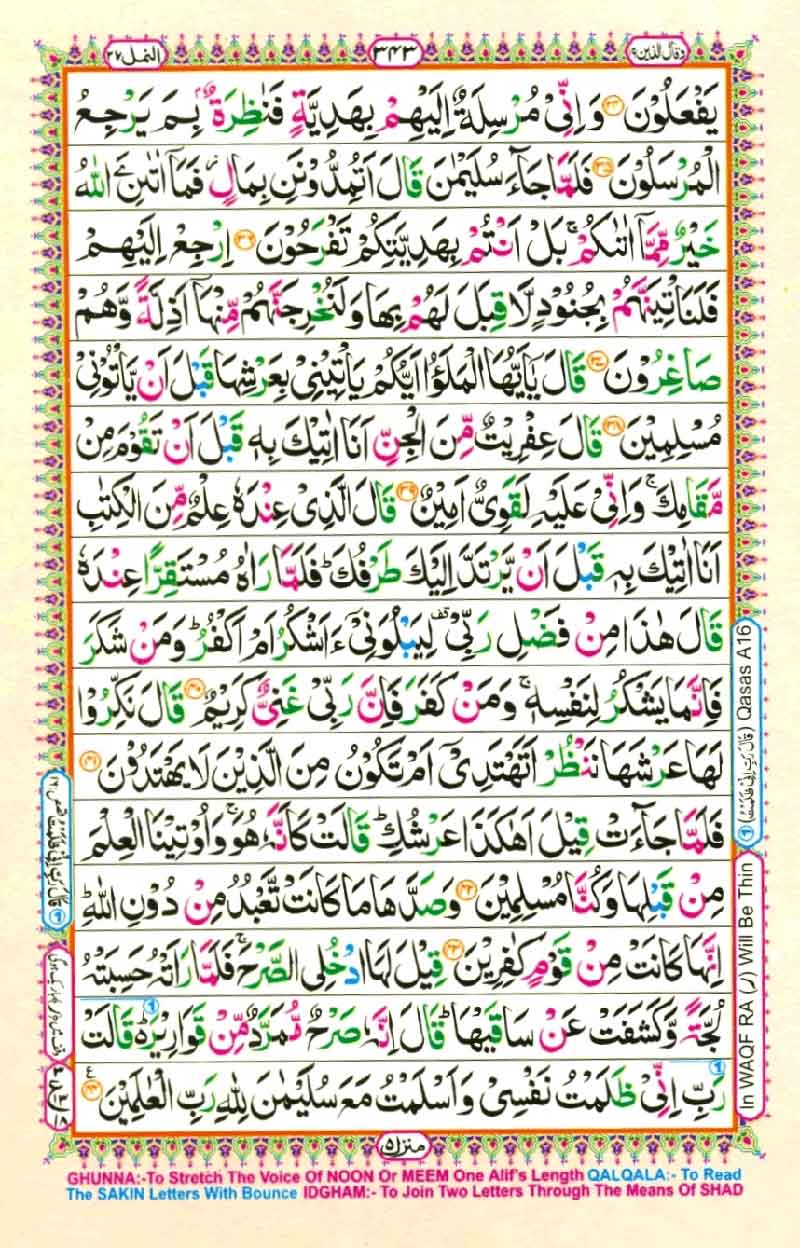 وقال الذین ۱۹
۳۴۳
النمل ۲۷
یَفْعَلُوْنَ ﴿۳۴﴾ وَاِنِّیْ مُرْسِلَةٌ اِلَیْهِمْ بِهَدِیَّةٍ فَنٰظِرَةٌۢ بِمَ یَرْجِعُ
الْمُرْسَلُوْنَ ﴿۳۵﴾ فَلَمَّا جَآءَ سُلَیْمٰنَ قَالَ اَتُمِدُّوْنَنِ بِمَالٍ ؗ فَمَاۤ اٰتٰىنِۦَ اللّٰهُ
خَیْرٌ مِّمَّاۤ اٰتٰىكُمْ ۚ بَلْ اَنْتُمْ بِهَدِیَّتِكُمْ تَفْرَحُوْنَ ﴿۳۶﴾ اِرْجِعْ اِلَیْهِمْ
فَلَنَاْتِیَنَّهُمْ بِجُنُوْدٍ لَّا قِبَلَ لَهُمْ بِهَا وَلَنُخْرِجَنَّهُمْ مِّنْهَاۤ اَذِلَّةً وَّهُمْ
صٰغِرُوْنَ ﴿۳۷﴾ قَالَ یٰۤاَیُّهَا الْمَلَؤُا اَیُّكُمْ یَاْتِیْنِیْ بِعَرْشِهَا قَبْلَ اَنْ یَّاْتُوْنِیْ
مُسْلِمِیْنَ ﴿۳۸﴾ قَالَ عِفْرِیْتٌ مِّنَ الْجِنِّ اَنَا اٰتِیْكَ بِهٖ قَبْلَ اَنْ تَقُوْمَ مِنْ
مَّقَامِكَ ۚ وَاِنِّیْ عَلَیْهِ لَقَوِیٌّ اَمِیْنٌ ﴿۳۹﴾ قَالَ الَّذِیْ عِنْدَهٗ عِلْمٌ مِّنَ الْكِتٰبِ
اَنَا اٰتِیْكَ بِهٖ قَبْلَ اَنْ یَّرْتَدَّ اِلَیْكَ طَرْفُكَ ؕ فَلَمَّا رَاٰهُ مُسْتَقِرًّا عِنْدَهٗ
قَالَ هٰذَا مِنْ فَضْلِ رَبِّیْ ۖ۫ لِیَبْلُوَنِیْۤ ءَاَشْكُرُ اَمْ اَكْفُرُ ؕ وَمَنْ شَكَرَ
فَاِنَّمَا یَشْكُرُ لِنَفْسِهٖ ۚ وَمَنْ كَفَرَ فَاِنَّ رَبِّیْ غَنِیٌّ كَرِیْمٌ ﴿۴۰﴾ قَالَ نَكِّرُوْا
لَهَا عَرْشَهَا نَنْظُرْ اَتَهْتَدِیْۤ اَمْ تَكُوْنُ مِنَ الَّذِیْنَ لَا یَهْتَدُوْنَ ﴿۴۱﴾
فَلَمَّا جَآءَتْ قِیْلَ اَهٰكَذَا عَرْشُكِ ؕ قَالَتْ كَاَنَّهٗ هُوَ ۚ وَاُوْتِیْنَا الْعِلْمَ
مِنْ قَبْلِهَا وَكُنَّا مُسْلِمِیْنَ ﴿۴۲﴾ وَصَدَّهَا مَا كَانَتْ تَّعْبُدُ مِنْ دُوْنِ اللّٰهِ ؕ
اِنَّهَا كَانَتْ مِنْ قَوْمٍ كٰفِرِیْنَ ﴿۴۳﴾ قِیْلَ لَهَا ادْخُلِی الصَّرْحَ ۚ فَلَمَّا رَاَتْهُ حَسِبَتْهُ
لُجَّةً وَّكَشَفَتْ عَنْ سَاقَیْهَا ؕ قَالَ اِنَّهٗ صَرْحٌ مُّمَرَّدٌ مِّنْ قَوَارِیْرَ ؕ۬ قَالَتْ
رَبِّ اِنِّیْ ظَلَمْتُ نَفْسِیْ وَاَسْلَمْتُ مَعَ سُلَیْمٰنَ لِلّٰهِ رَبِّ الْعٰلَمِیْنَ ﴿۴۴﴾
(قَالَ رَبِّ اِنِّیْ ظَلَمْتُ) Qasas A16
In WAQF RA (ر) Will Be Thin
منزل ۵
GHUNNA:-To Stretch The Voice Of NOON Or MEEM One Alif's Length QALQALA:- To Read
The SAKIN Letters With Bounce IDGHAM:- To Join Two Letters Through The Means Of SHAD